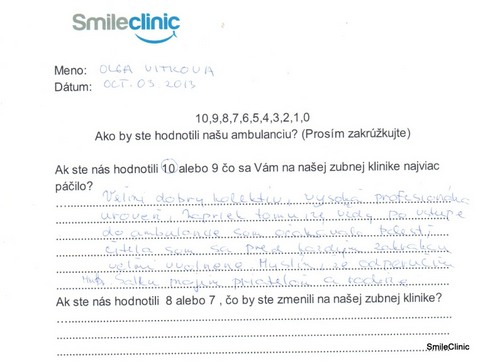 Smileclinic
Meno: OLGA VITKOVA
Dátum: OCT.03.2013
10,9,8,7,6,5,4,3,2,1,0
Ako by ste hodnotili našu ambulanciu? (Prosím zakrúžkujte)
Ak ste nás hodnotili 10 alebo 9 čo sa Vám na našej zubnej klinike najviac
páčilo?
Veľmi dobrý kolektív, vysoká profesionálna
úroveň. Zapriek tomu, že vždy po vstupe
do ambulancie som očakávala bolesť
cítela som sa pred každým zákrokom
veľmi uvoľnene. Myslím, že odporučím
mojim priateľom a rodine
Ak ste nás hodnotili 8 alebo 7 , čo by ste zmenili na našej zubnej klinike?
SmileClinic